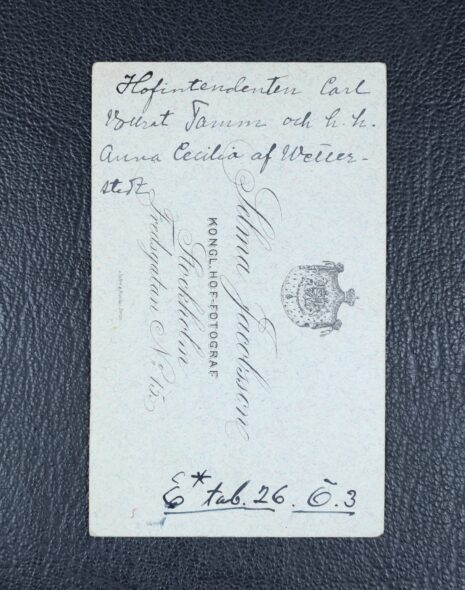 Hofintendenten Carl
Tamm och h. h.
Anna Cecilia af Wetter-
stedt
Selma Jacobsson
KONGL. HOF-FOTOGRAF
Stockholm
Fredsgatan No 15.
E* tab. 26. Ö. 3